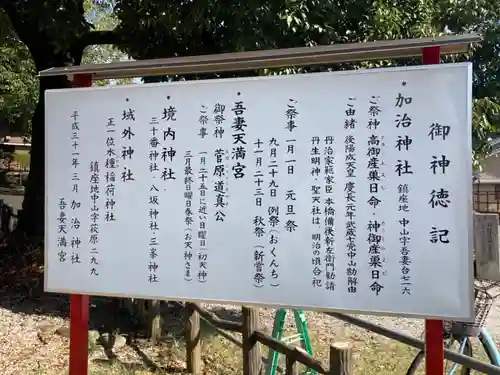 御神徳記
・加治神社 鎮座地 中山字吾妻台七一六
ご祭神 高御産巣日命・神御産巣日命
ご由緒 後陽成天皇 慶長元年武蔵七党中山勘解由
丹治家範家臣 本橋備後新左衛門勧請
丹生明神・聖天社は 明治の頃合祀
ご祭事 一月一日 元旦祭
九月二十九日 例祭(おくんち)
十一月二十三日 秋祭(新嘗祭)
・吾妻天満宮
御祭神 菅原道真公
ご祭事 一月二十五日に近い日曜日(初天神)
三月最終日曜日春祭(お天神さま)
・境内神社
三十番神社・八坂神社・三峯神社
・域外神社
正一位水種稲荷神社
鎮座地中山字萩原二九九
平成三十一年三月 加治神社
吾妻天満宮